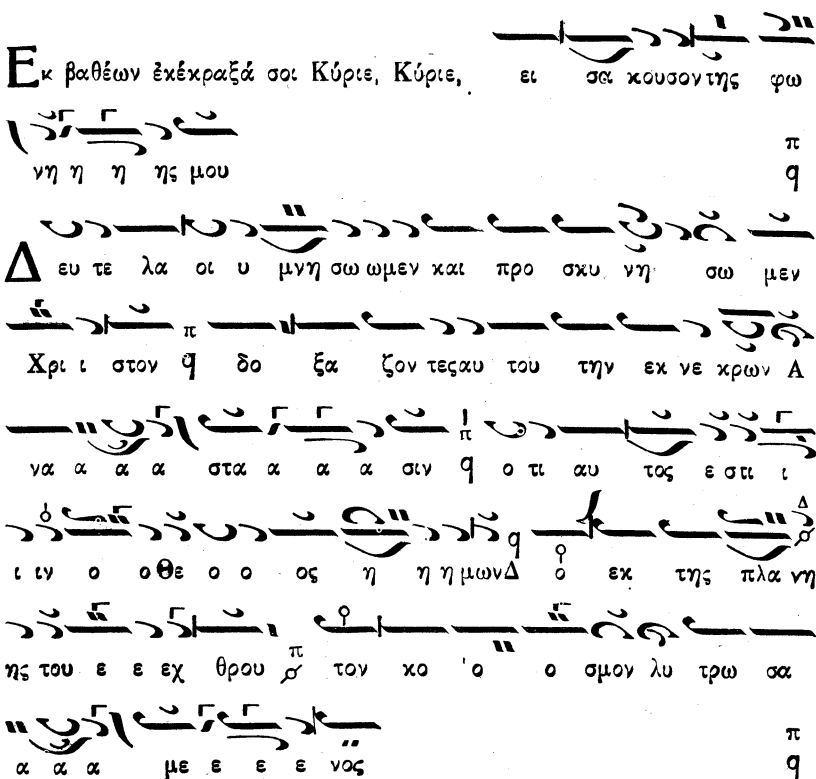 Εκ βαθέων ἐκέκραξά σοι Κύριε, Κύριε, ει σα κουσον της φω
νη η η ης μου π q
Δ ευ τε λα οι υ μνη σω ωμεν και προ σκυ νη σω μεν
Χρι ι στον π q δο ξα ζον τεςαυ του την εκ νε κρων Α
να α α α στα α α α σιν π q ο τι αυ τος ε στι ι
ι ιν ο ο Θε ο ο ος η η η μων Δ q ο εκ της πλα νη
ης του ε ε εχ θρου π τον κο 'ο ο σμον λυ τρω σα
α α α με ε ε ε νος π q